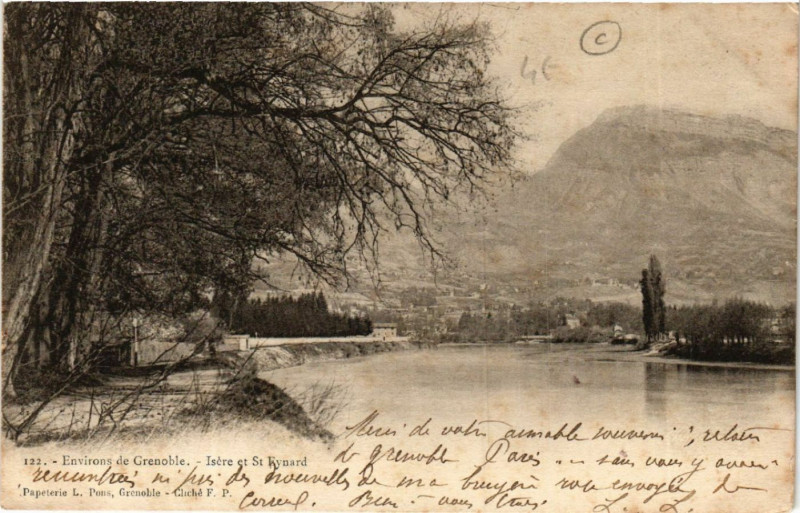 C
4€
Merci de votre aimable souvenir ; retour
de grenoble Paris sans vous y avoir
122. - Environs de Grenoble. - Isère et St Eynard
rencontrés ni pris des nouvelles de ma bruyère rose envoyée de
Papeterie L. Pons, Grenoble - Cliché F. P.
Bien à vous
L. L.